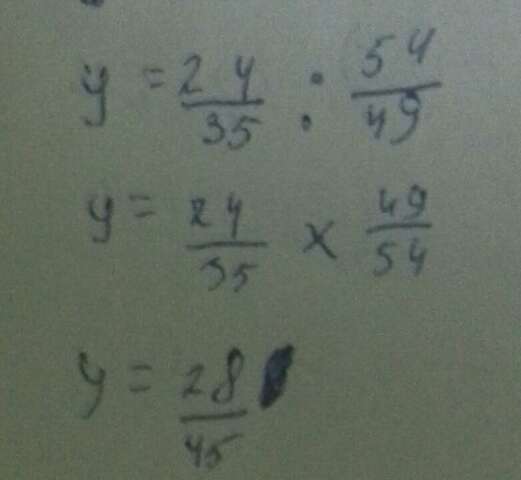 y = 24/35 : 54/49
y = 24/35 x 49/54
y = 28/45